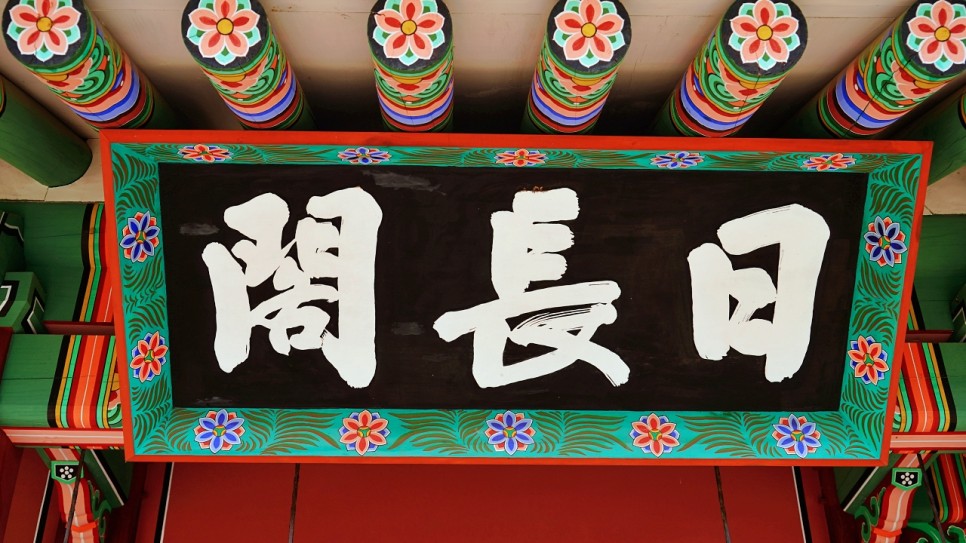 日長閣